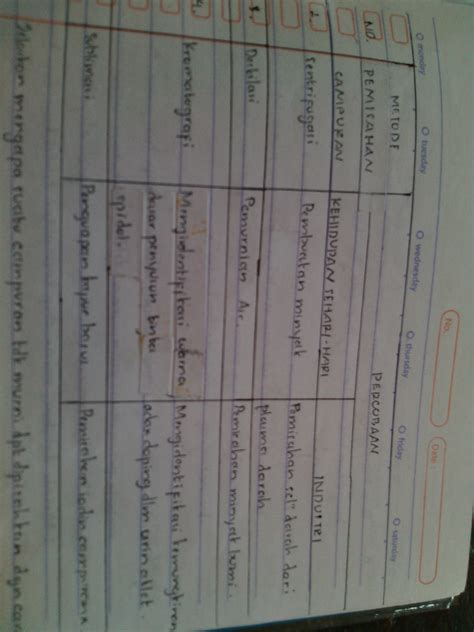 No.
Date :
O monday O tuesday O wednesday O thursday O friday O saturday
NO. METODE PERCOBAAN
PEMISAHAN
CAMPURAN KEHIDUPAN SEHARI-HARI INDUSTRI
2. Sentrifugasi Pembuatan minyak Pemisahan sel" darah dari
plasma darah
3. Destilasi Pemurnian Air. Pemisahan minyak bumi.
4. Kromatografi Mengidentifikasi warna, Mengidentifikasi kemungkinan
dasar penyusun tinta adax doping dlm urin atlet.
spidol.
Sublimasi Penguapan kapur barus Pemisahan iodin campuranx
Jelaskan mengapa suatu campuran tdk murni dpt dipisahkan dgn cara